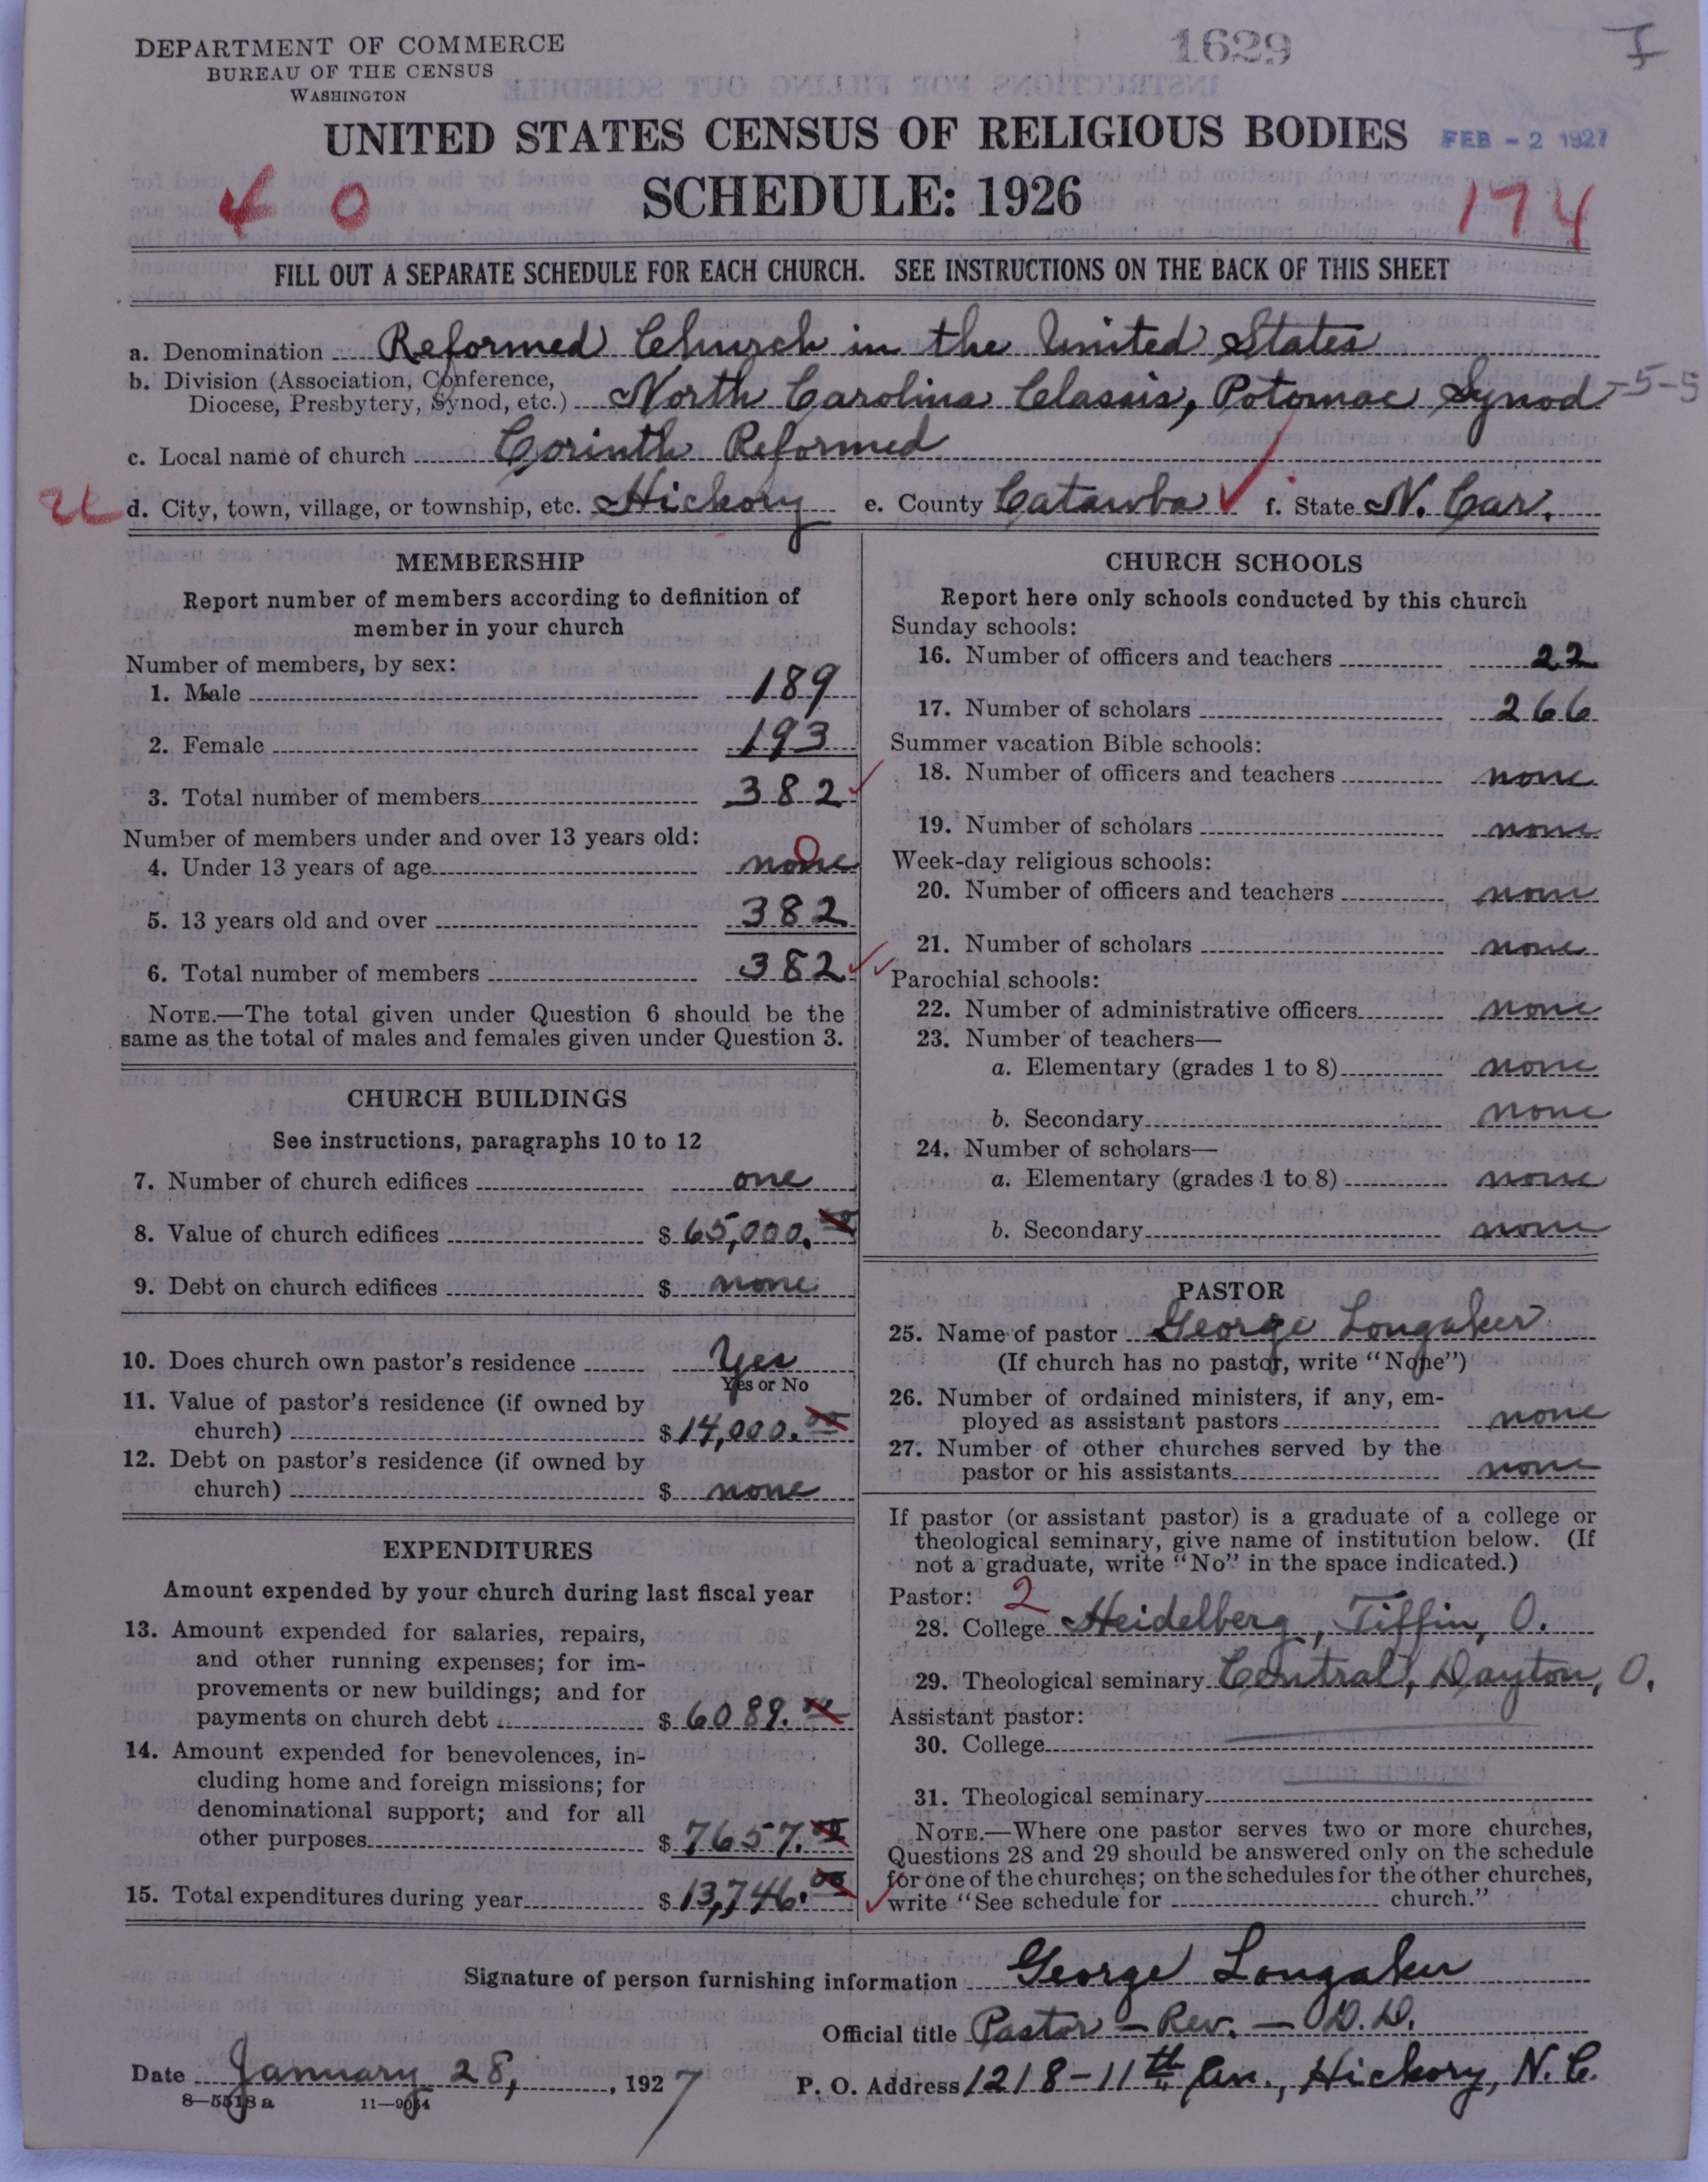 DEPARTMENT OF COMMERCE
BUREAU OF THE CENSUS
WASHINGTON
1629
I
UNITED STATES CENSUS OF RELIGIOUS BODIES
FEB - 2 1927
SCHEDULE: 1926
0
174
FILL OUT A SEPARATE SCHEDULE FOR EACH CHURCH. SEE INSTRUCTIONS ON THE BACK OF THIS SHEET
a. Denomination Reformed Church in the United States
b. Division (Association, Conference,
Diocese, Presbytery, Synod, etc.) North Carolina Classis, Potomac Synod -5-5
c. Local name of church Corinth Reformed
d. City, town, village, or township, etc. Hickory e. County Catawba f. State N. Car.
MEMBERSHIP
Report number of members according to definition of
member in your church
Number of members, by sex:
1. Male 189
2. Female 193
3. Total number of members 382
Number of members under and over 13 years old:
4. Under 13 years of age none 0
5. 13 years old and over 382
6. Total number of members 382
NOTE.—The total given under Question 6 should be the
same as the total of males and females given under Question 3.
CHURCH BUILDINGS
See instructions, paragraphs 10 to 12
7. Number of church edifices one
8. Value of church edifices $ 65,000.00
9. Debt on church edifices $ none
10. Does church own pastor's residence Yes
Yes or No
11. Value of pastor's residence (if owned by
church) $ 14,000.00
12. Debt on pastor's residence (if owned by
church) $ none
EXPENDITURES
Amount expended by your church during last fiscal year
13. Amount expended for salaries, repairs,
and other running expenses; for im-
provements or new buildings; and for
payments on church debt $ 6089.00
14. Amount expended for benevolences, in-
cluding home and foreign missions; for
denominational support; and for all
other purposes $ 7657.00
15. Total expenditures during year $ 13,746.00
CHURCH SCHOOLS
Report here only schools conducted by this church
Sunday schools:
16. Number of officers and teachers 22
17. Number of scholars 266
Summer vacation Bible schools:
18. Number of officers and teachers none
19. Number of scholars none
Week-day religious schools:
20. Number of officers and teachers none
21. Number of scholars none
Parochial schools:
22. Number of administrative officers none
23. Number of teachers—
a. Elementary (grades 1 to 8) none
b. Secondary none
24. Number of scholars—
a. Elementary (grades 1 to 8) none
b. Secondary none
PASTOR
25. Name of pastor George Longaker
(If church has no pastor, write "None")
26. Number of ordained ministers, if any, em-
ployed as assistant pastors none
27. Number of other churches served by the
pastor or his assistants none
If pastor (or assistant pastor) is a graduate of a college or
theological seminary, give name of institution below. (If
not a graduate, write "No" in the space indicated.)
Pastor: 2
28. College Heidelberg, Tiffin, O.
29. Theological seminary Central, Dayton, O.
Assistant pastor:
30. College
31. Theological seminary
NOTE.—Where one pastor serves two or more churches,
Questions 28 and 29 should be answered only on the schedule
for one of the churches; on the schedules for the other churches,
write "See schedule for church."
Signature of person furnishing information George Longaker
Official title Pastor - Rev. - D.D.
Date January 28, 1927 P. O. Address 1218-11th Av., Hickory, N.C.
8-5518a 11-9054